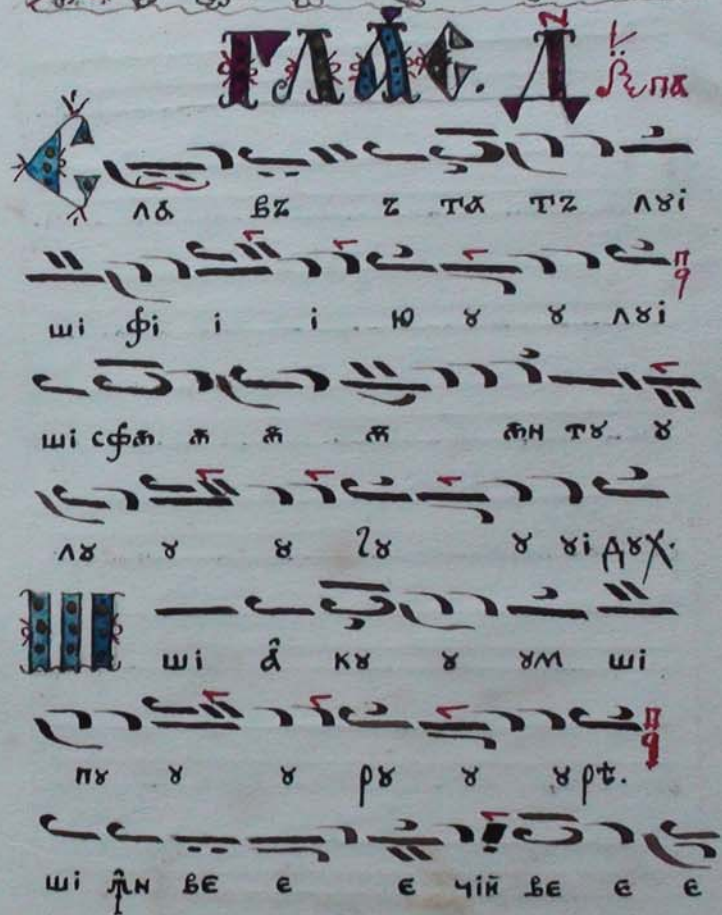 ГЛАС. Д па
С ла въ ъ та тъ лꙋі
ші фі і і ю ꙋ ꙋ лꙋі
ші сфѫ ѫ ѫ ѫ ѫн тꙋ ꙋ
лꙋ ꙋ ꙋ ꙋ ꙋі дꙋх.
Ш ші а̂ кꙋ ꙋ ꙋм ші
пꙋ ꙋ ꙋ рꙋ ꙋ ꙋ рѣ.
ші ꙟ̂н ве е е чїй ве е е